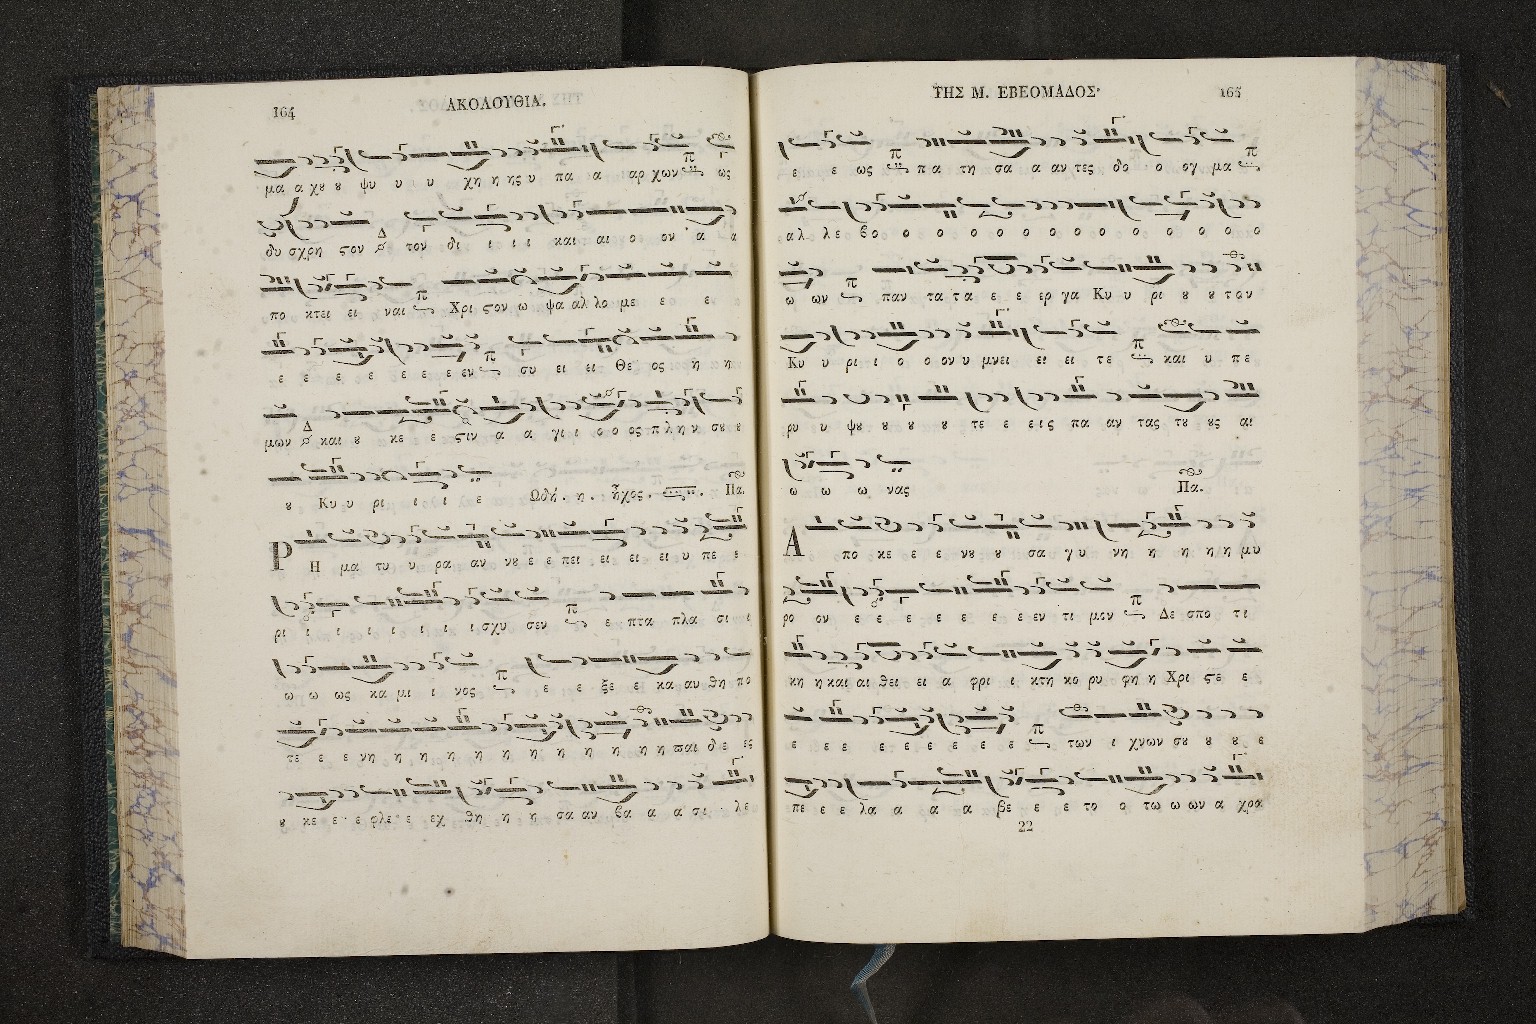 164
ΑΚΟΛΟΥΘΙΑ.
μα α χȣ ȣ ψυ υ υ χη η ης υ πα α αρ χων ως
δυ σχρη ςον τον δι ι ι ι και αι ο ον α α
πο κτει ει ναι Χρι ςον ω ψα αλ λο με ε ε
ε ε ε ε ε ε ε εν συ ει ει Θε ος η η
μων και ȣ κε ε ςιν α α γι ι ο ο ος πλη ν σȣ ȣ
ȣ Κυ υ ρι ι ι ε Ωδή. η. ἦχος. Πα.
Ρ Η μα τυ υ ρα αν νȣ ε ε πει ει ει ει υ πε ε
ρι ι ι ι ι ι ι ι σχυ σεν ε πτα πλα σι ι
ω ω ως κα μι ι νος ε ε ξε ε κα αυ θη πο
τε ε ε νη η η η η η η η η η η παι δε ες
ȣ κε ε ε φλε ε εχ θη η η σα αν βα α α σι λε
ΤΗΣ Μ. ΕΒΕΟΜΑΔΟΣ·
165
ε ε ως πα τη σα α αν τες δο ο ογ μα
αλ λε βο ο ο ο ο ο ο ο ο ο ο ο ο ο ο
ω ων παν τα τα ε ε ερ γα Κυ υ ρι ȣ ȣ τον
Κυ υ ρι ι ο ο ον υ μνει ει ει τε και υ πε
ρυ υ ψȣ ȣ ȣ ȣ τε ε εις πα αν τας τȣ ȣς αι
ω ω ω νας Πα.
Α πο κε ε ε νȣ ȣ σα γυ νη η η η η μυ
ρο ον ε ε ε ε ε ε ε εν τι μον Δε σπο τι
κη η και αι θει ει α φρι ι κτη κο ρυ φη η Χρι ςε ε
ε ε ε ε ε ε ε ε ε των ι χνων σȣ ȣ ȣ ε
πε ε ε λα α α α βε ε ε το ο τω ω ων α χρα
22